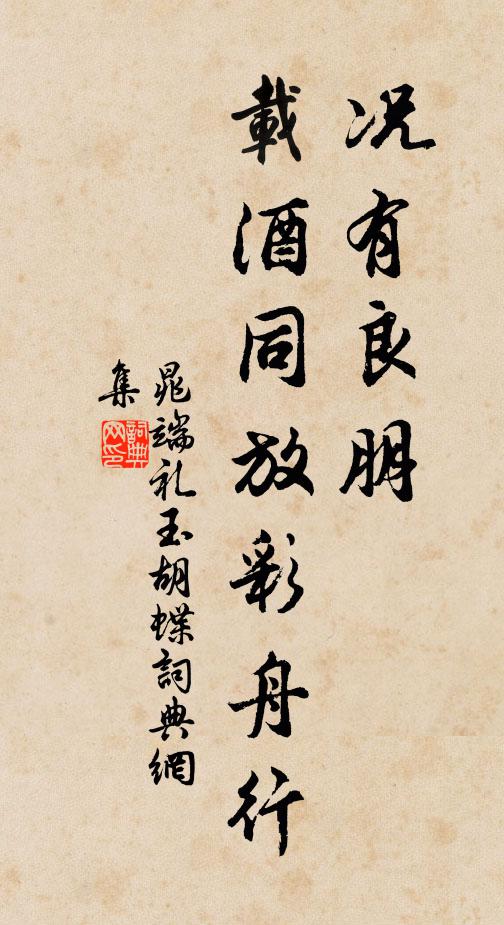 况有良朋
載酒同放彩舟行
晁端礼玉胡蝶詞典網
集
詞典
网印